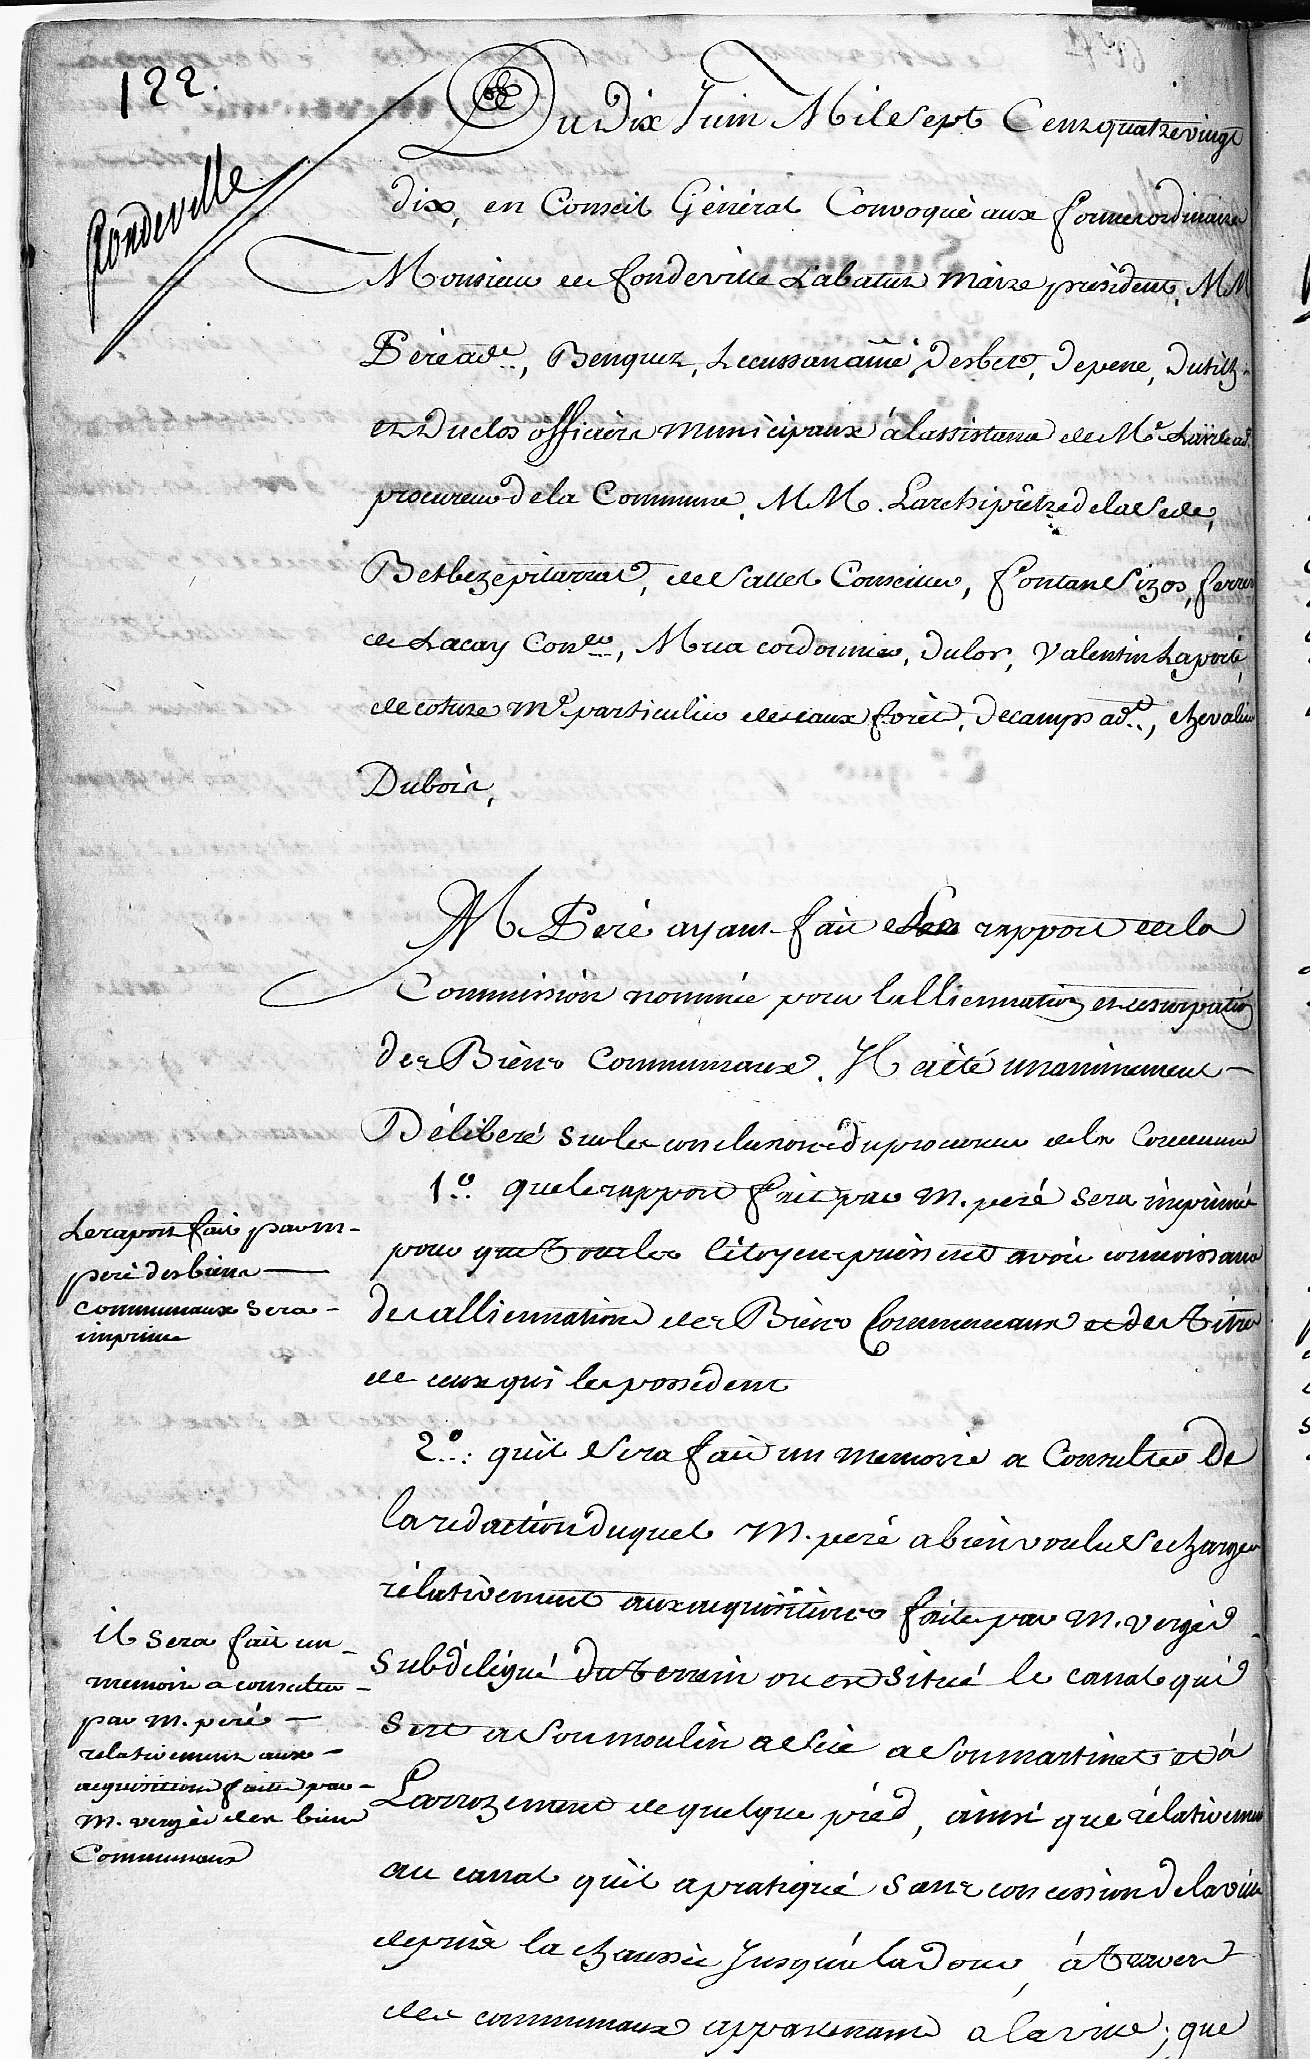 122.
fondeville
Du Dix Juin Mil Sept Cens quatre vingt
dix, en Conseil Général Convoqué aux formes ordinaires
Monsieur de fondeville Labatut maire président, MM
Péré adt., Benquez, Lecussan ainé, desbets, depene, dutilh
et Duclos officiers municipaux à lassistance de Mr.
procureur de la Commune, MM. Larchiprêtre de la Sede,
Betbeze pitarrat, de Sallet Conseiller, fontan Sizos, ferrere
de Lacay Conler, Mua cordonnier, dulor, Valentin Laporte,
de coture me. particulier des eaux forêts, decamps adt., chevalier
Dubois,
M Peré ayant fait le rapport de la
Commission nominée pour lalliennation et usurpation
des Biens Communaux. Il a été unanimement
Déliberé sur les conclusions du procureur de la Commune
1o. que le rapport fait par M. peré sera imprimé
pour que tous les Citoyens puissent avoir connoissance
des alliennations des Biens Communaux et des titres
de ceux qui les possedent
2o. quil Sera fait un memoire a Consulter de
la redaction duquel M. peré a bien voulu Se charger
rélativement aux acquisitions faites par M. vergès
Subdélégué du terrein ou est situé le canal qui
sert a Son moulin a Scie a Son martinet et à
Larrozement de quelque pred, ainsi que rélativement
au canal quil a pratiqué sans concession de la ville
depuis la chaussée Jusquà ladour, à travers
des communaux appartenants a la ville; que
Le raport fait par m.
peré des biens
communaux sera
imprimé
il sera fait un
memoire a consulter
par m. peré
relativement aux
acquisitions faites par
M. vergès des biens
Communaux